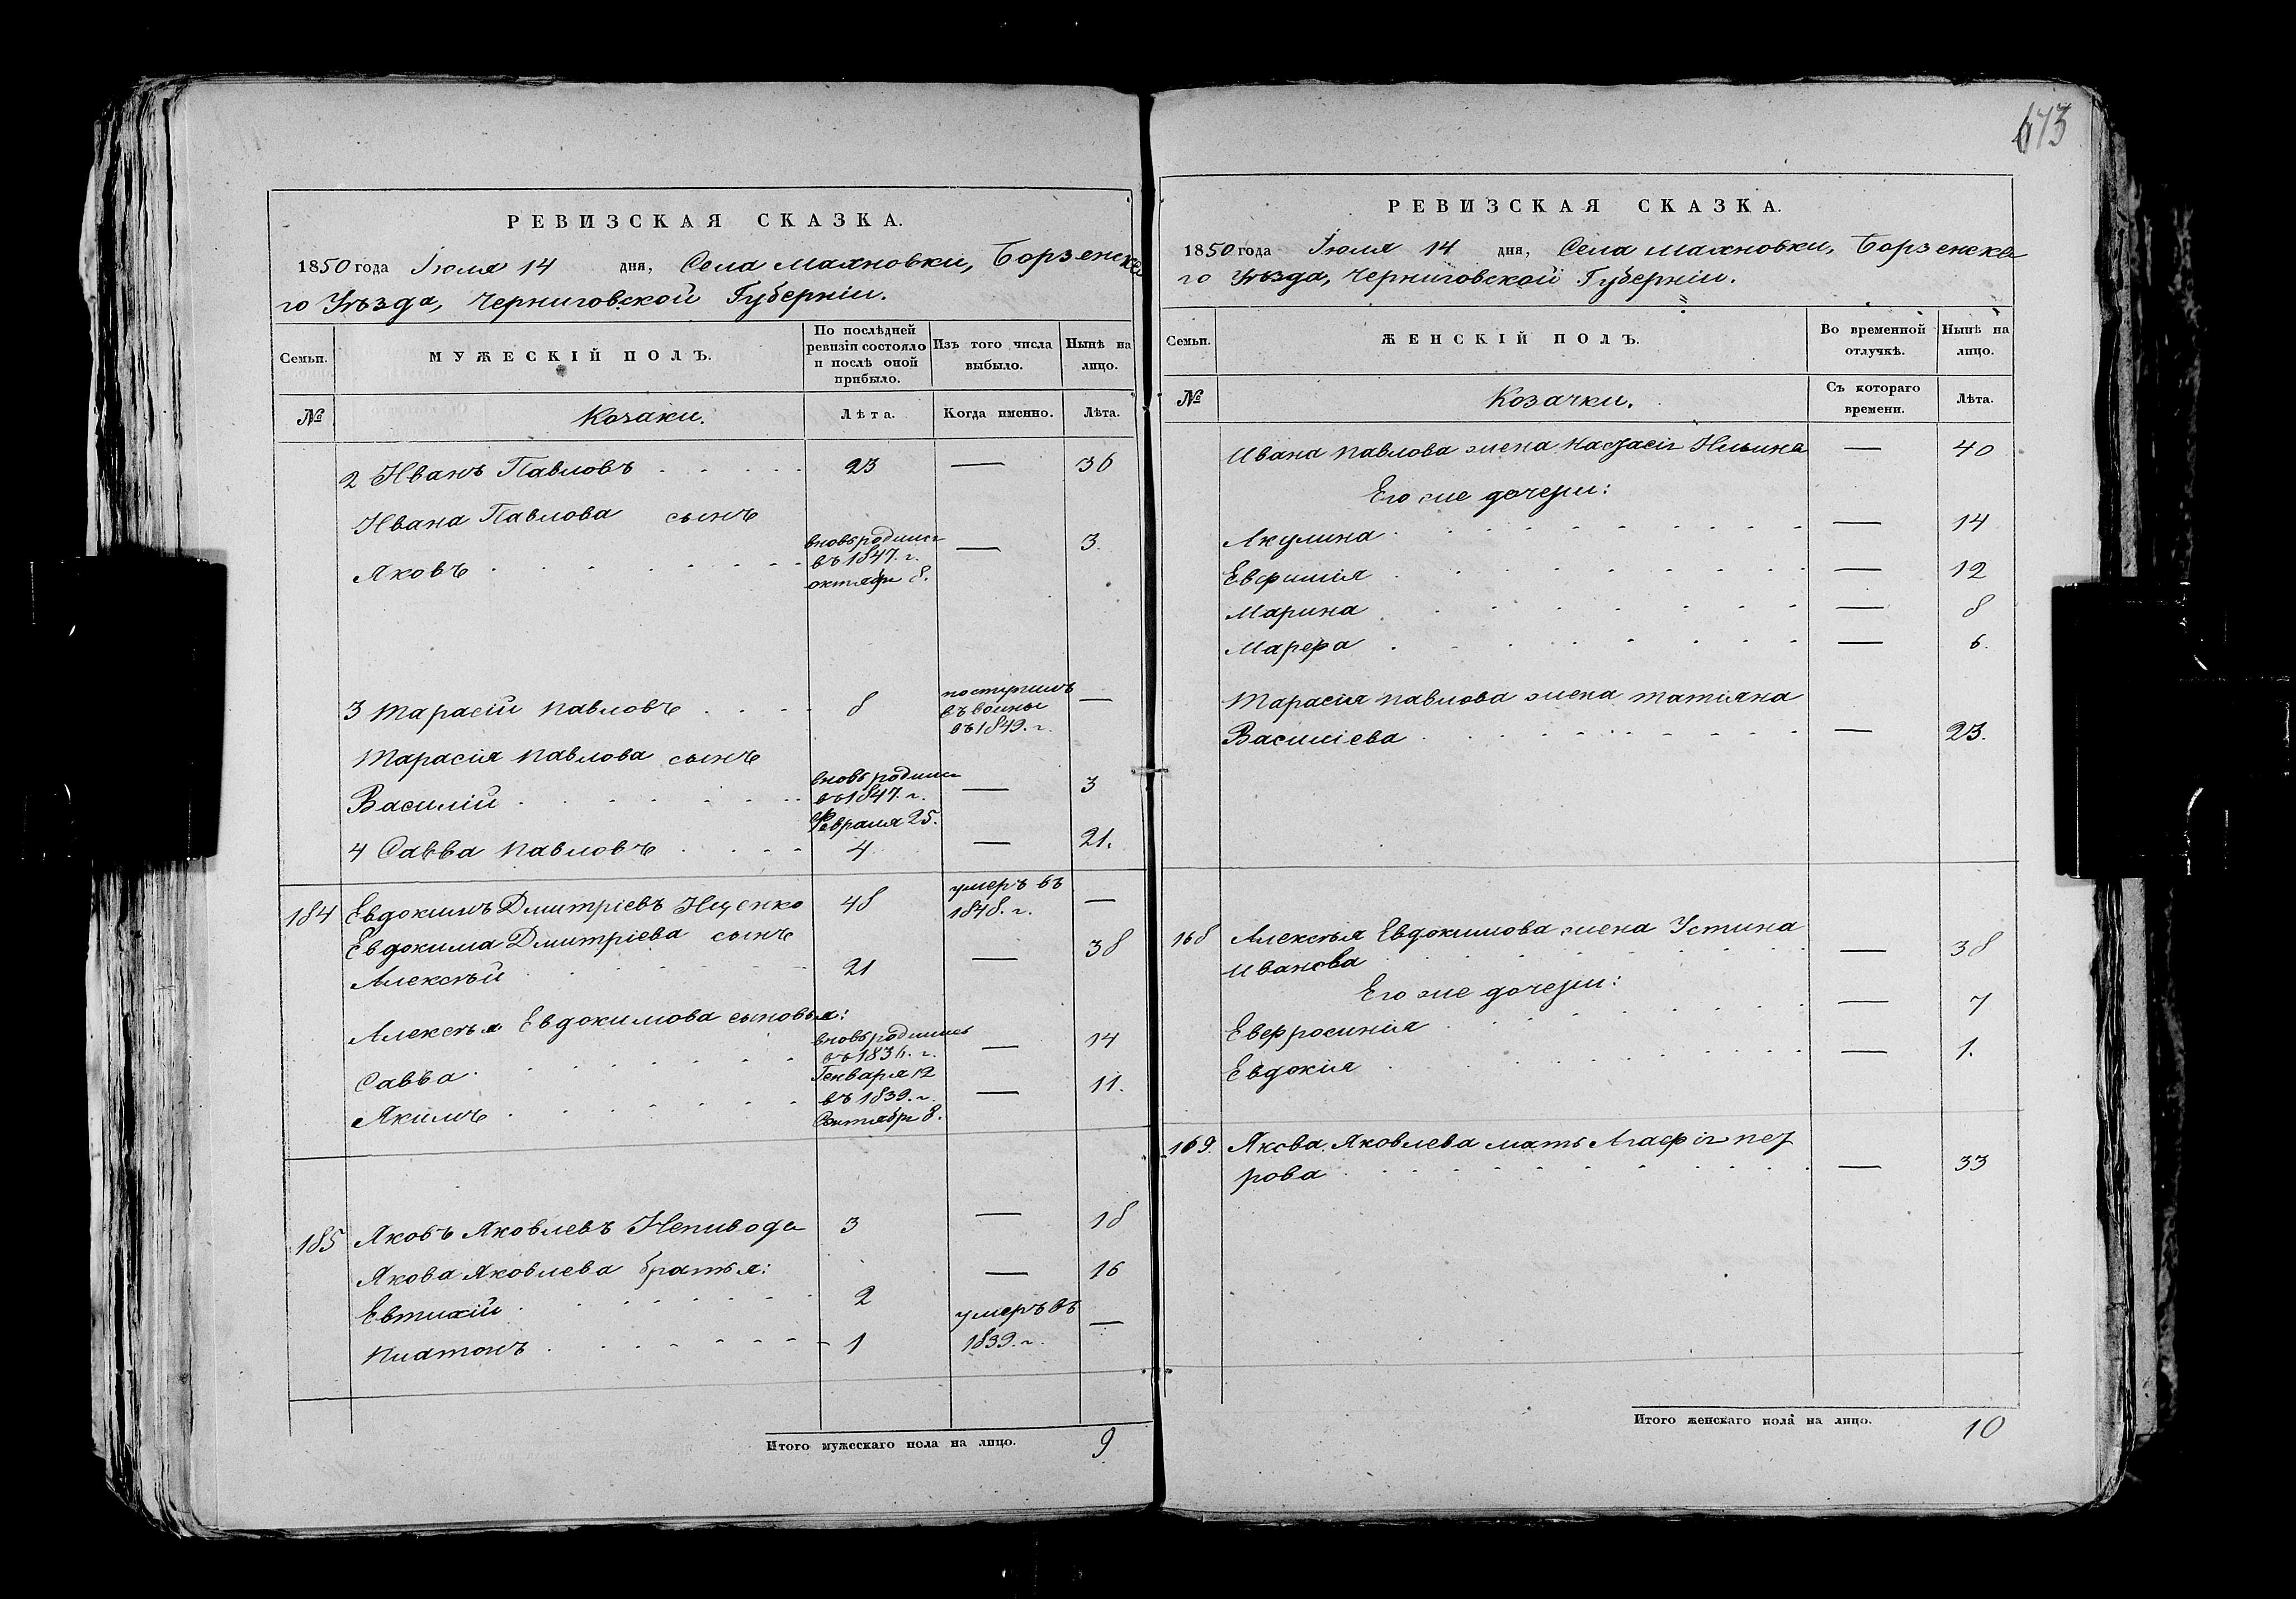 РЕВИЗСКАЯ СКАЗКА.
1850 года Іюля 14 дня, Села Махновки, Борзенска
го Уѣзда, Черниговской Губерніи.
Семьи. МУЖЕСКІЙ ПОЛЪ. По послѣдней ревизіи состояло и послѣ оной прибыло. Изъ того числа выбыло. Нынѣ на лицо.
№ Козаки. Лѣта. Когда именно. Лѣта.
2 Иванъ Павловъ 23 — 36
Ивана Павлова сынъ
Яковъ вновь родился въ 1847. г. октября 8. — 3.
3 Тарасій Павловъ 8 поступилъ въ воины въ 1849. г. —
Тарасія Павлова сынъ
Василій вновь родился въ 1847. г. Февраля 25. — 3
4 Савва Павловъ 4 — 21.
184 Евдокимъ Дмитріевъ Ищенко 48 умеръ въ 1848. г. —
Евдокима Дмитріева сынъ
Алексѣй 21 — 38
Алексѣя Евдокимова сыновья:
Савва вновь родились въ 1836. г. Генваря 12 — 14
Якимъ въ 1839. г. Сентября 8. — 11.
185 Яковъ Яковлевъ Непивода 3 — 18
Якова Яковлева братья:
Евтихій 2 — 16
Платонъ 1 умеръ въ 1839. г. —
Итого мужескаго пола на лицо. 9
673
РЕВИЗСКАЯ СКАЗКА.
1850 года Іюля 14 дня, Села Махновки, Борзенска
го Уѣзда, Черниговской Губерніи.
Семьи. ЖЕНСКІЙ ПОЛЪ. Во временной отлучкѣ. Нынѣ на лицо.
№ Козачки. Съ котораго времени. Лѣта.
Ивана Павлова жена Настасія Ильина — 40
Его же дочери:
Акулина — 14
Евфимія — 12
Марина — 8
Марфа — 6.
Тарасія Павлова жена Татіяна
Василіева — 23.
168 Алексѣя Евдокимова жена Устина
Иванова — 38
Его же дочери:
Евфросинія — 7
Евдокія — 1.
169. Якова Яковлева мать Агафія Пет
рова — 33
Итого женскаго пола на лицо. 10